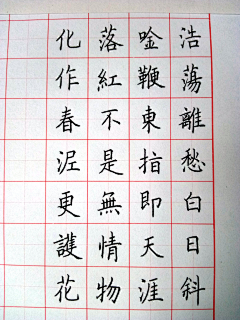 浩蕩離愁白日斜
唫鞭東指即天涯
落紅不是無情物
化作春泥更護花